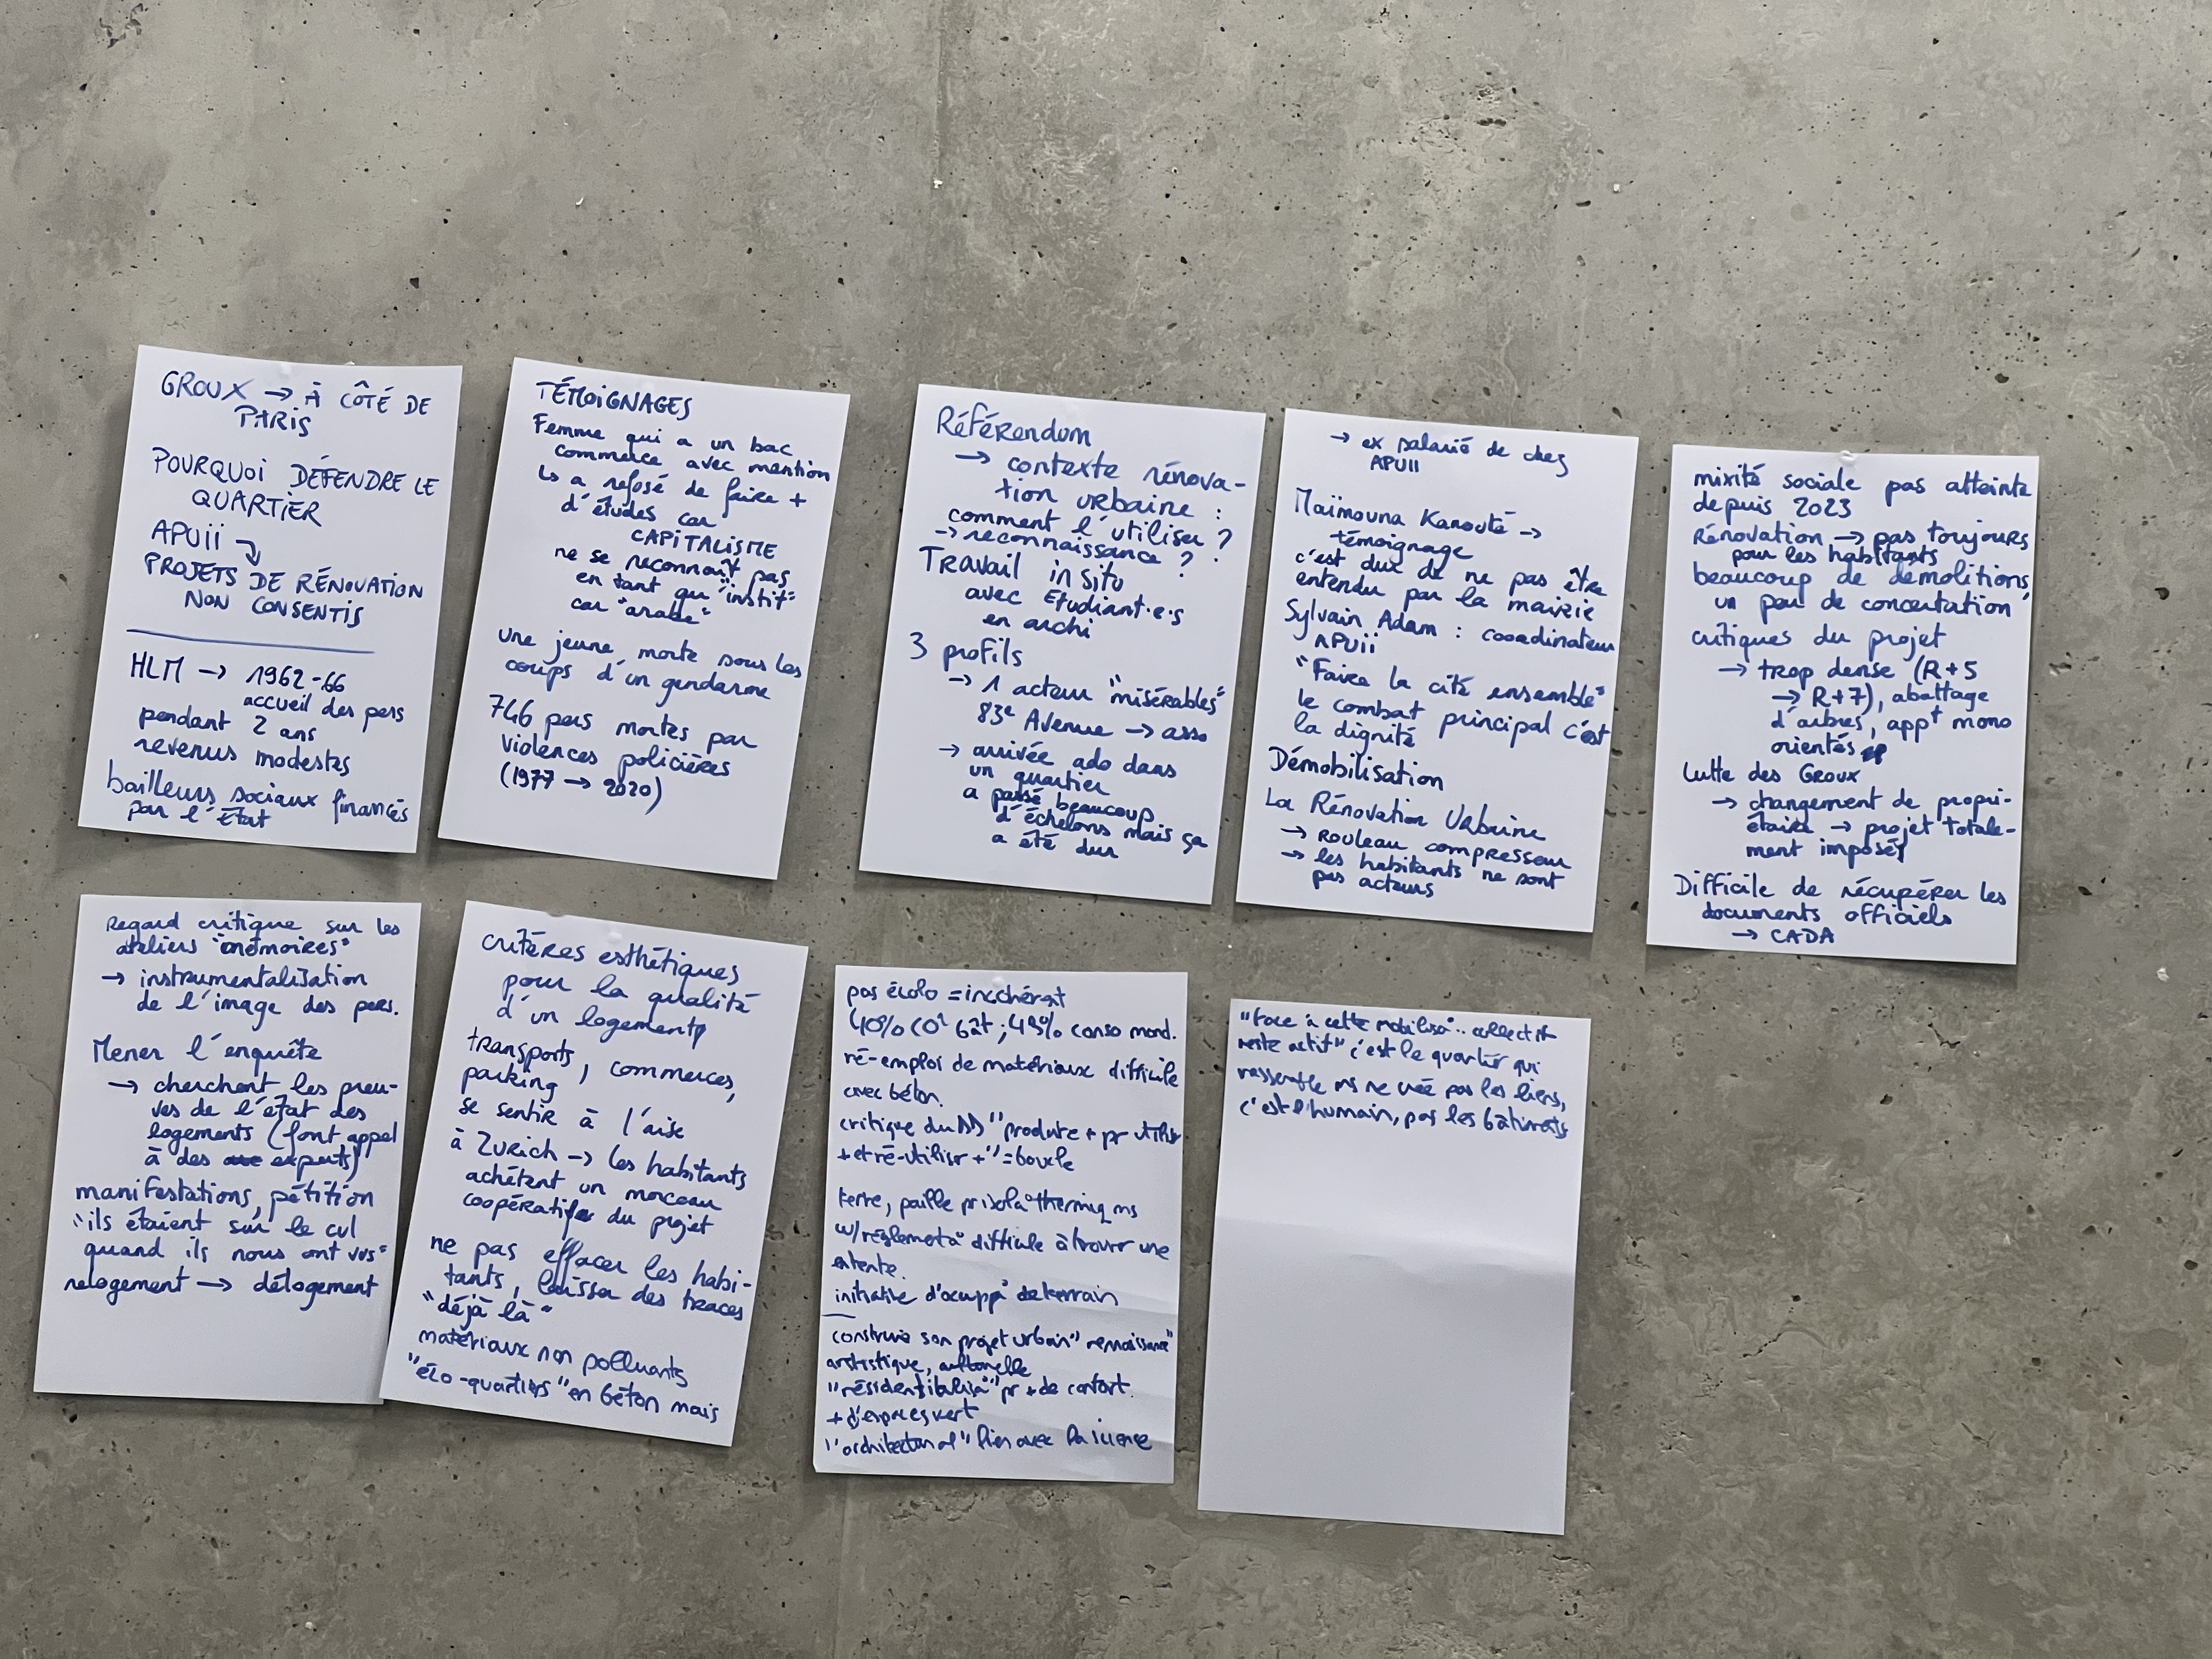 GROUX → À CÔTÉ DE
PARIS
POURQUOI DÉFENDRE LE
QUARTIER
APUii
PROJETS DE RÉNOVATION
NON CONSENTIS
HLM → 1962-66
accueil des pers
pendant 2 ans
revenus modestes
bailleurs sociaux financés
par l'État
TÉMOIGNAGES
Femme qui a un bac
commerce avec mention
↳ a refusé de faire +
d'études car
CAPITALISME
ne se reconnaît pas
en tant qu'"instit"
car "arabe"
une jeune morte sous les
coups d'un gendarme
746 pers mortes par
violences policières
(1977 → 2020)
Référendum
→ contexte rénova-
tion urbaine :
comment l'utiliser ?
→ reconnaissance ?
Travail in situ
avec Etudiant·e·s
en archi
3 profils
→ 1 acteur "misérables"
83e Avenue → asso
→ arrivée ado dans
un quartier
a passé beaucoup
d'échelons mais ça
a été dur
→ ex salarié de chez
APUII
Maïmouna Kanouté →
témoignage
c'est dur de ne pas être
entendu par la mairie
Sylvain Adam : coordinateur
APUii
"Faire la cité ensemble"
le combat principal c'est
la dignité
Démobilisation
La Rénovation Urbaine
→ rouleau compresseur
→ les habitants ne sont
pas acteurs
mixité sociale pas atteinte
depuis 2023
Rénovation → pas toujours
pour les habitants
beaucoup de démolitions,
un peu de concertation
critiques du projet
→ trop dense (R+5
→ R+7), abattage
d'arbres, appt mono
orientés
lutte des Groux
→ changement de propri-
étaire → projet totale-
ment imposé
Difficile de récupérer les
documents officiels
→ CADA
Regard critique sur les
ateliers "mémoires"
→ instrumentalisation
de l'image des pers.
Mener l'enquête
→ cherchent les preu-
ves de l'état des
logements (font appel
à des experts)
manifestations, pétition
"ils étaient sur le cul
quand ils nous ont vus"
relogement → délogement
critères esthétiques
pour la qualité
d'un logement
transports, commerces,
parking
se sentir à l'aise
à Zurich → les habitants
achètent un morceau
coopératif du projet
ne pas effacer les habi-
tants, laisser des traces
"déjà là"
matériaux non polluants
"éco-quartiers" en béton mais
pas écolo = incohérent
40% CO² bât ; 4 % conso mond.
ré-emploi de matériaux difficile
avec béton.
critique du DD "produire + pr utiliser
+ et ré-utiliser +" = boucle
terre, paille pr isola° thermiq ms
w/ réglementa° difficile à trouver une
entente.
initiative d'occupa° de terrain
construire son projet urbain "renaissance"
artistique, culturelle
"résidentialisa°" pr + de confort.
+ d'espaces vert
"architectural" lien avec la science
"Face à cette mobilisa°.. collectif
reste actif" c'est le quartier qui
rassemble ms ne crée pas les liens,
c'est l'humain, pas les bâtiments